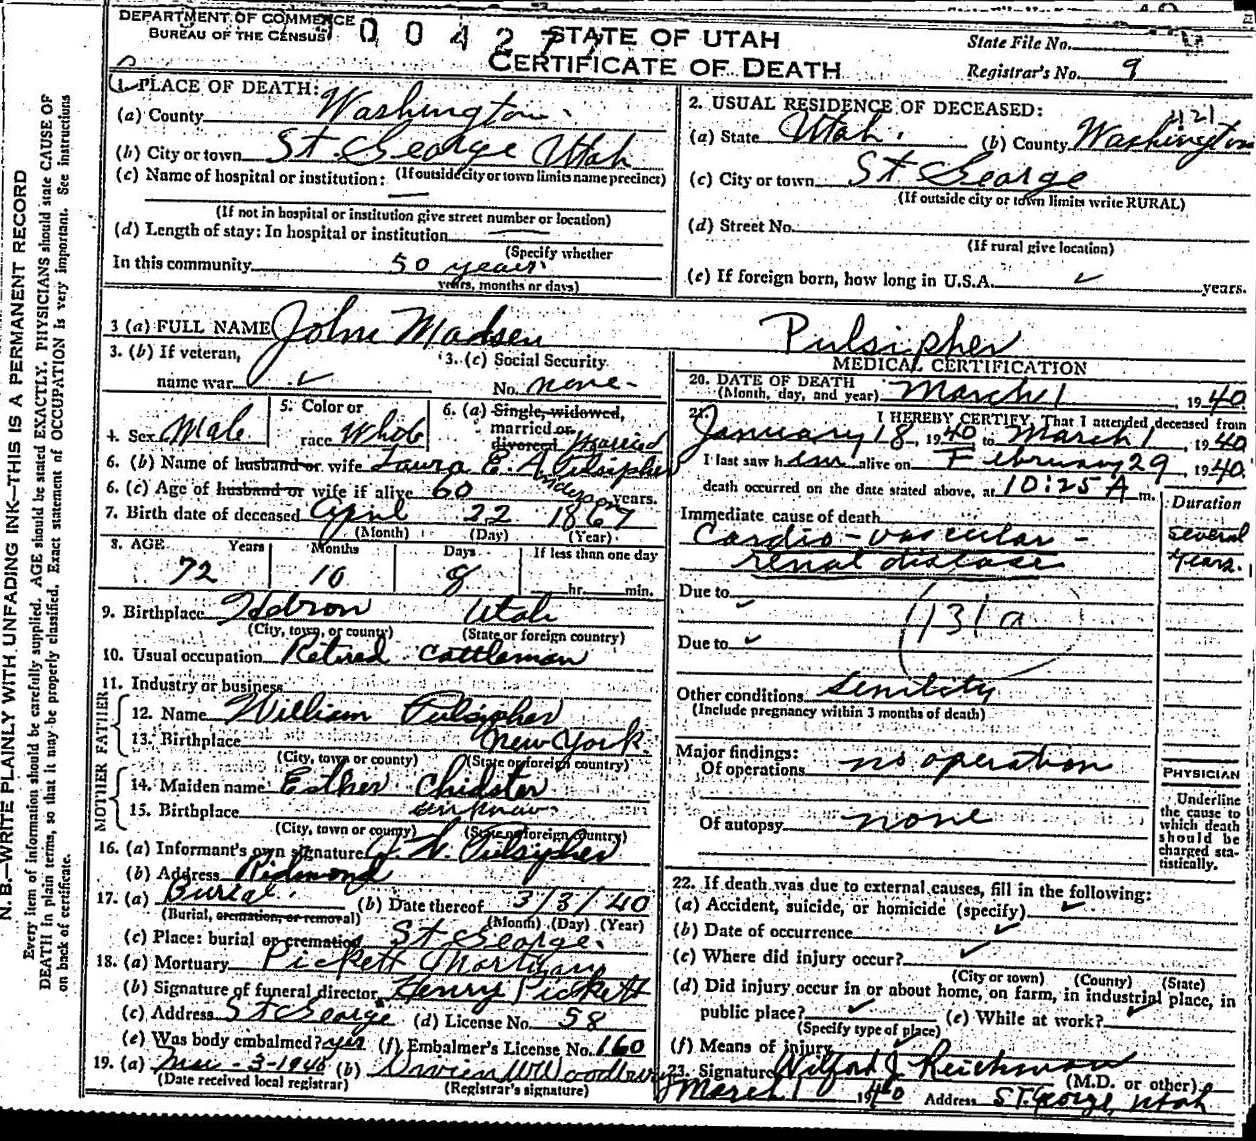 DEPARTMENT OF COMMERCE
BUREAU OF THE CENSUS
STATE OF UTAH
CERTIFICATE OF DEATH
State File No.
Registrar's No. 9
N. B.—WRITE PLAINLY WITH UNFADING INK—THIS IS A PERMANENT RECORD
Every item of information should be carefully supplied. AGE should be stated EXACTLY. PHYSICIANS should state CAUSE OF
DEATH in plain terms, so that it may be properly classified. Exact statement of OCCUPATION is very important. See instructions
on back of certificate.
1. PLACE OF DEATH:
(a) County Washington
(b) City or town St. George Utah
(If outside city or town limits name precinct)
(c) Name of hospital or institution:
(If not in hospital or institution give street number or location)
(d) Length of stay: In hospital or institution
(Specify whether
In this community 50 years
years, months or days)
2. USUAL RESIDENCE OF DECEASED:
(a) State Utah. (b) County Washington
(c) City or town St George
(If outside city or town limits write RURAL)
(d) Street No.
(If rural give location)
(e) If foreign born, how long in U.S.A. years.
3 (a) FULL NAME John Madsen Pulsipher
3. (b) If veteran,
name war
3. (c) Social Security
No. none-
4. Sex Male
5. Color or
race White
6. (a) Single, widowed,
married or
divorced Married
6. (b) Name of husband or wife Laura E. A Pulsipher
6. (c) Age of husband or wife if alive 60 years.
7. Birth date of deceased April 22 1867
(Month) (Day) (Year)
8. AGE Years Months Days If less than one day
72 10 8 hr. min.
9. Birthplace Hebron Utah
(City, town, or county) (State or foreign country)
10. Usual occupation Retired cattleman
11. Industry or business
FATHER
12. Name William Pulsipher
13. Birthplace New York
(City, town or county) (State or foreign country)
MOTHER
14. Maiden name Esther Chidster
15. Birthplace unknown
(City, town or county) (State or foreign country)
16. (a) Informant's own signature Pulsipher
(b) Address Ridmond
17. (a) Burial (b) Date thereof 3/3/40
(Burial, cremation, or removal) (Month) (Day) (Year)
(c) Place: burial or cremation St George
18. (a) Mortuary Pickett Mortuary
(b) Signature of funeral director Henry Pickett
(c) Address St George (d) License No. 58
(e) Was body embalmed? yes (f) Embalmer's License No. 160
19. (a) Mar-3-1940 (b) Woodbury
(Date received local registrar) (Registrar's signature)
MEDICAL CERTIFICATION
20. DATE OF DEATH
(Month, day, and year) March 1 1940
21. I HEREBY CERTIFY, That I attended deceased from
January 18, 1940 to March 1 1940
I last saw him alive on February 29 1940
death occurred on the date stated above, at 10:25 A m.
Duration
Immediate cause of death
Cardio-vascular-
renal disease
several
years.
Due to
131a
Due to
Other conditions Senility
(Include pregnancy within 3 months of death)
Major findings:
Of operations no operation
Of autopsy none
PHYSICIAN
Underline
the cause to
which death
should be
charged sta-
tistically.
22. If death was due to external causes, fill in the following:
(a) Accident, suicide, or homicide (specify)
(b) Date of occurrence
(c) Where did injury occur?
(City or town) (County) (State)
(d) Did injury occur in or about home, on farm, in industrial place, in
public place? (e) While at work?
(Specify type of place)
(f) Means of injury
23. Signature Wilford J. Reichmann
(M.D. or other)
March 1 1940 Address St. George, Utah